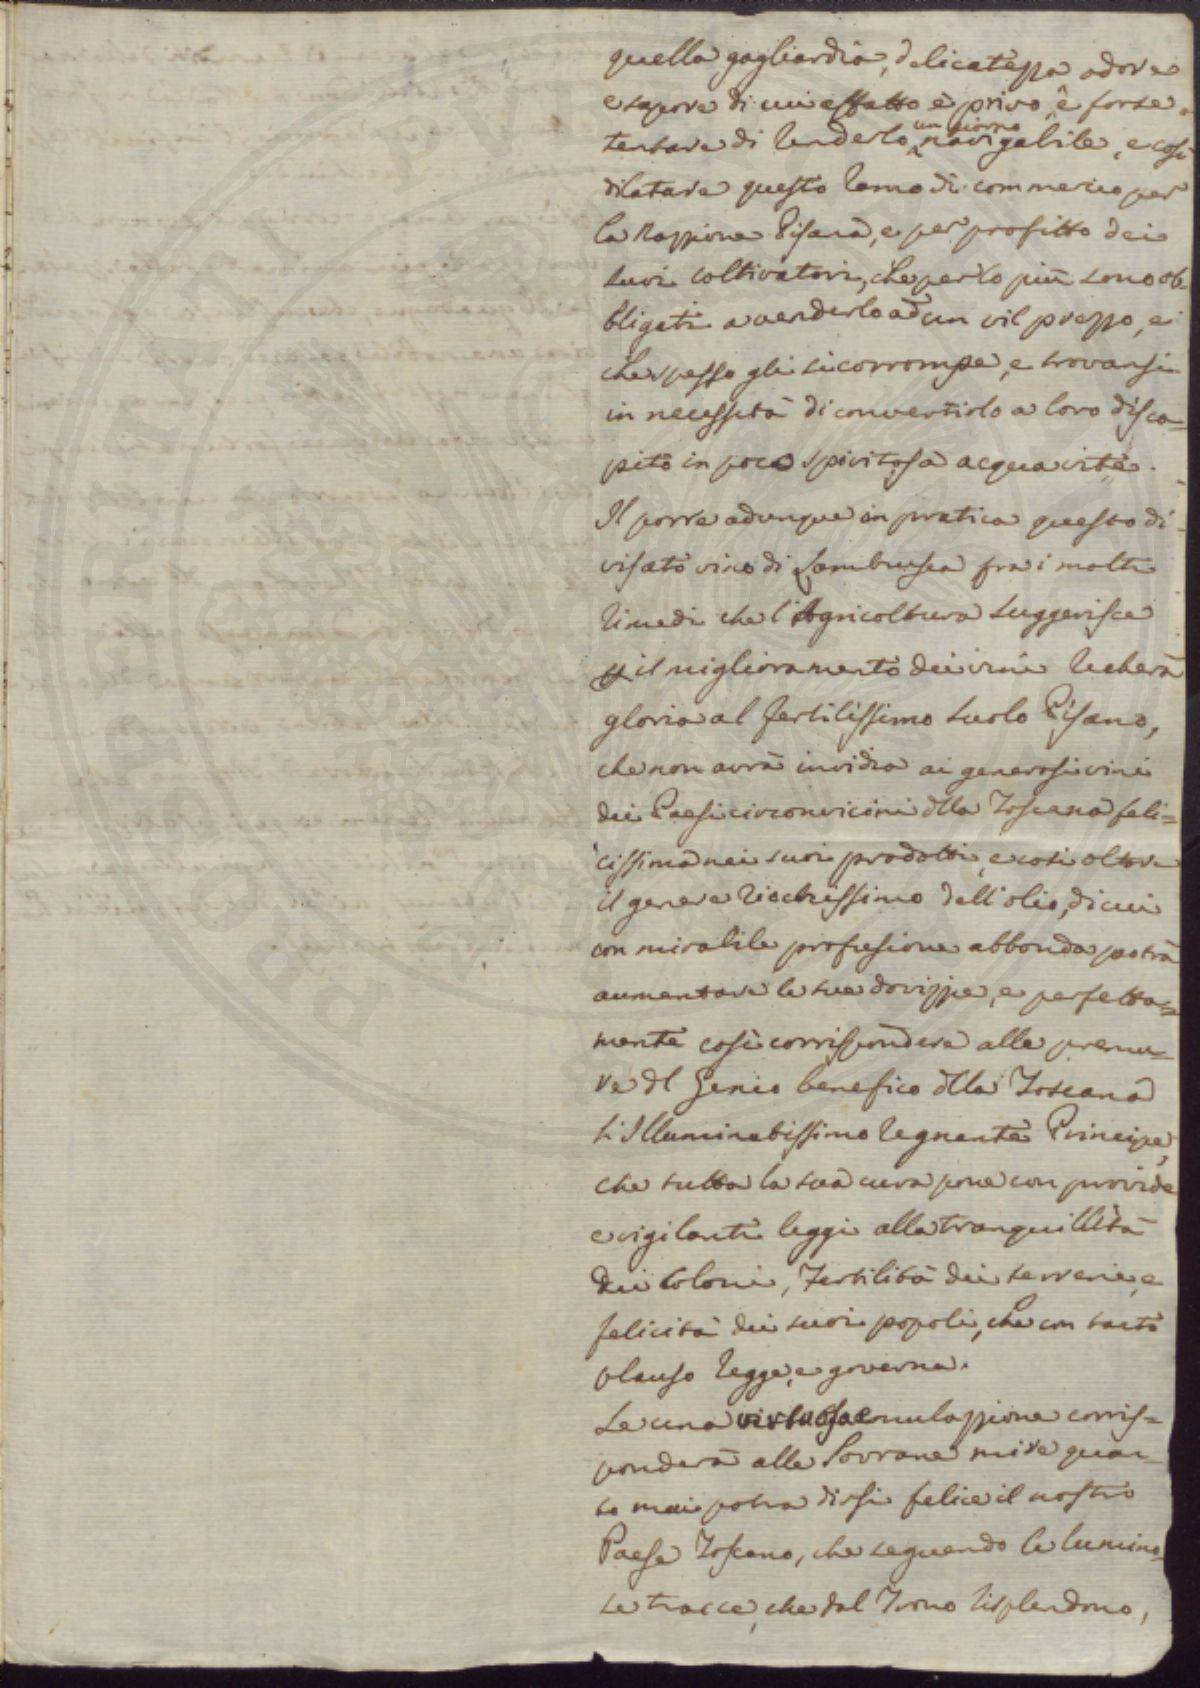 quella gagliardia, delicatezza odore
e sapore di cui affatto è privo, e forse
tentare di renderlo un giorno navigabile, e così
dilatare questo ramo di commercio per
la Nazzione Pisana, e per profitto dei
suoi coltivatori, che per lo più sono ob-
bligati a venderlo ad un vil prezzo, e
che spesso gli si corrompe, e trovansi
in necessità di convertirlo a loro disca=
pito in poca spiritosa acqua vite.
Il porre adunque in pratica questo di-
visato vino di Lambrusca fra i molti
rimedi che l'Agricoltura suggerisce
il miglioramento dei vini recherà
gloria al fertilissimo suolo Pisano,
che non avrà invidia ai generosi vini
dei Paesi circonvicini dlla Toscana feli=
cissima nei suoi prodotti, e così oltre
il genere ricchissimo dell'olio, di cui
con mirabile profusione abbonda potrà
aumentare le sue dovizzie, e perfetta=
mente così corrispondere alle premu=
re dl Genio benefico dlla Toscana
L'Illuminatissimo regnante Principe,
che tutta la sua cura pone con provide
e vigilanti leggi alla tranquillità
dei Coloni, fertilità dei terreni, e
felicità dei suoi popoli, che con tanto
plauso regge, e governa.
Se una virtuosa emulazzione corris=
ponderà alle Sovrane mire quan-
to mai potrà dirsi felice il nostro
Paese Toscano, che seguendo le lumino-
se tracce, che dal Trono risplendono,